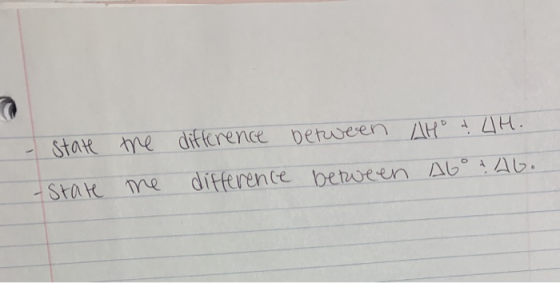 - State the difference between ΔH° + ΔH.
- State the difference between ΔG° + ΔG.